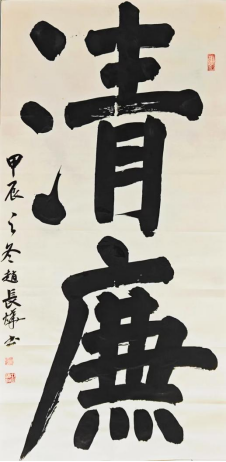 清廉
甲辰之冬趙長